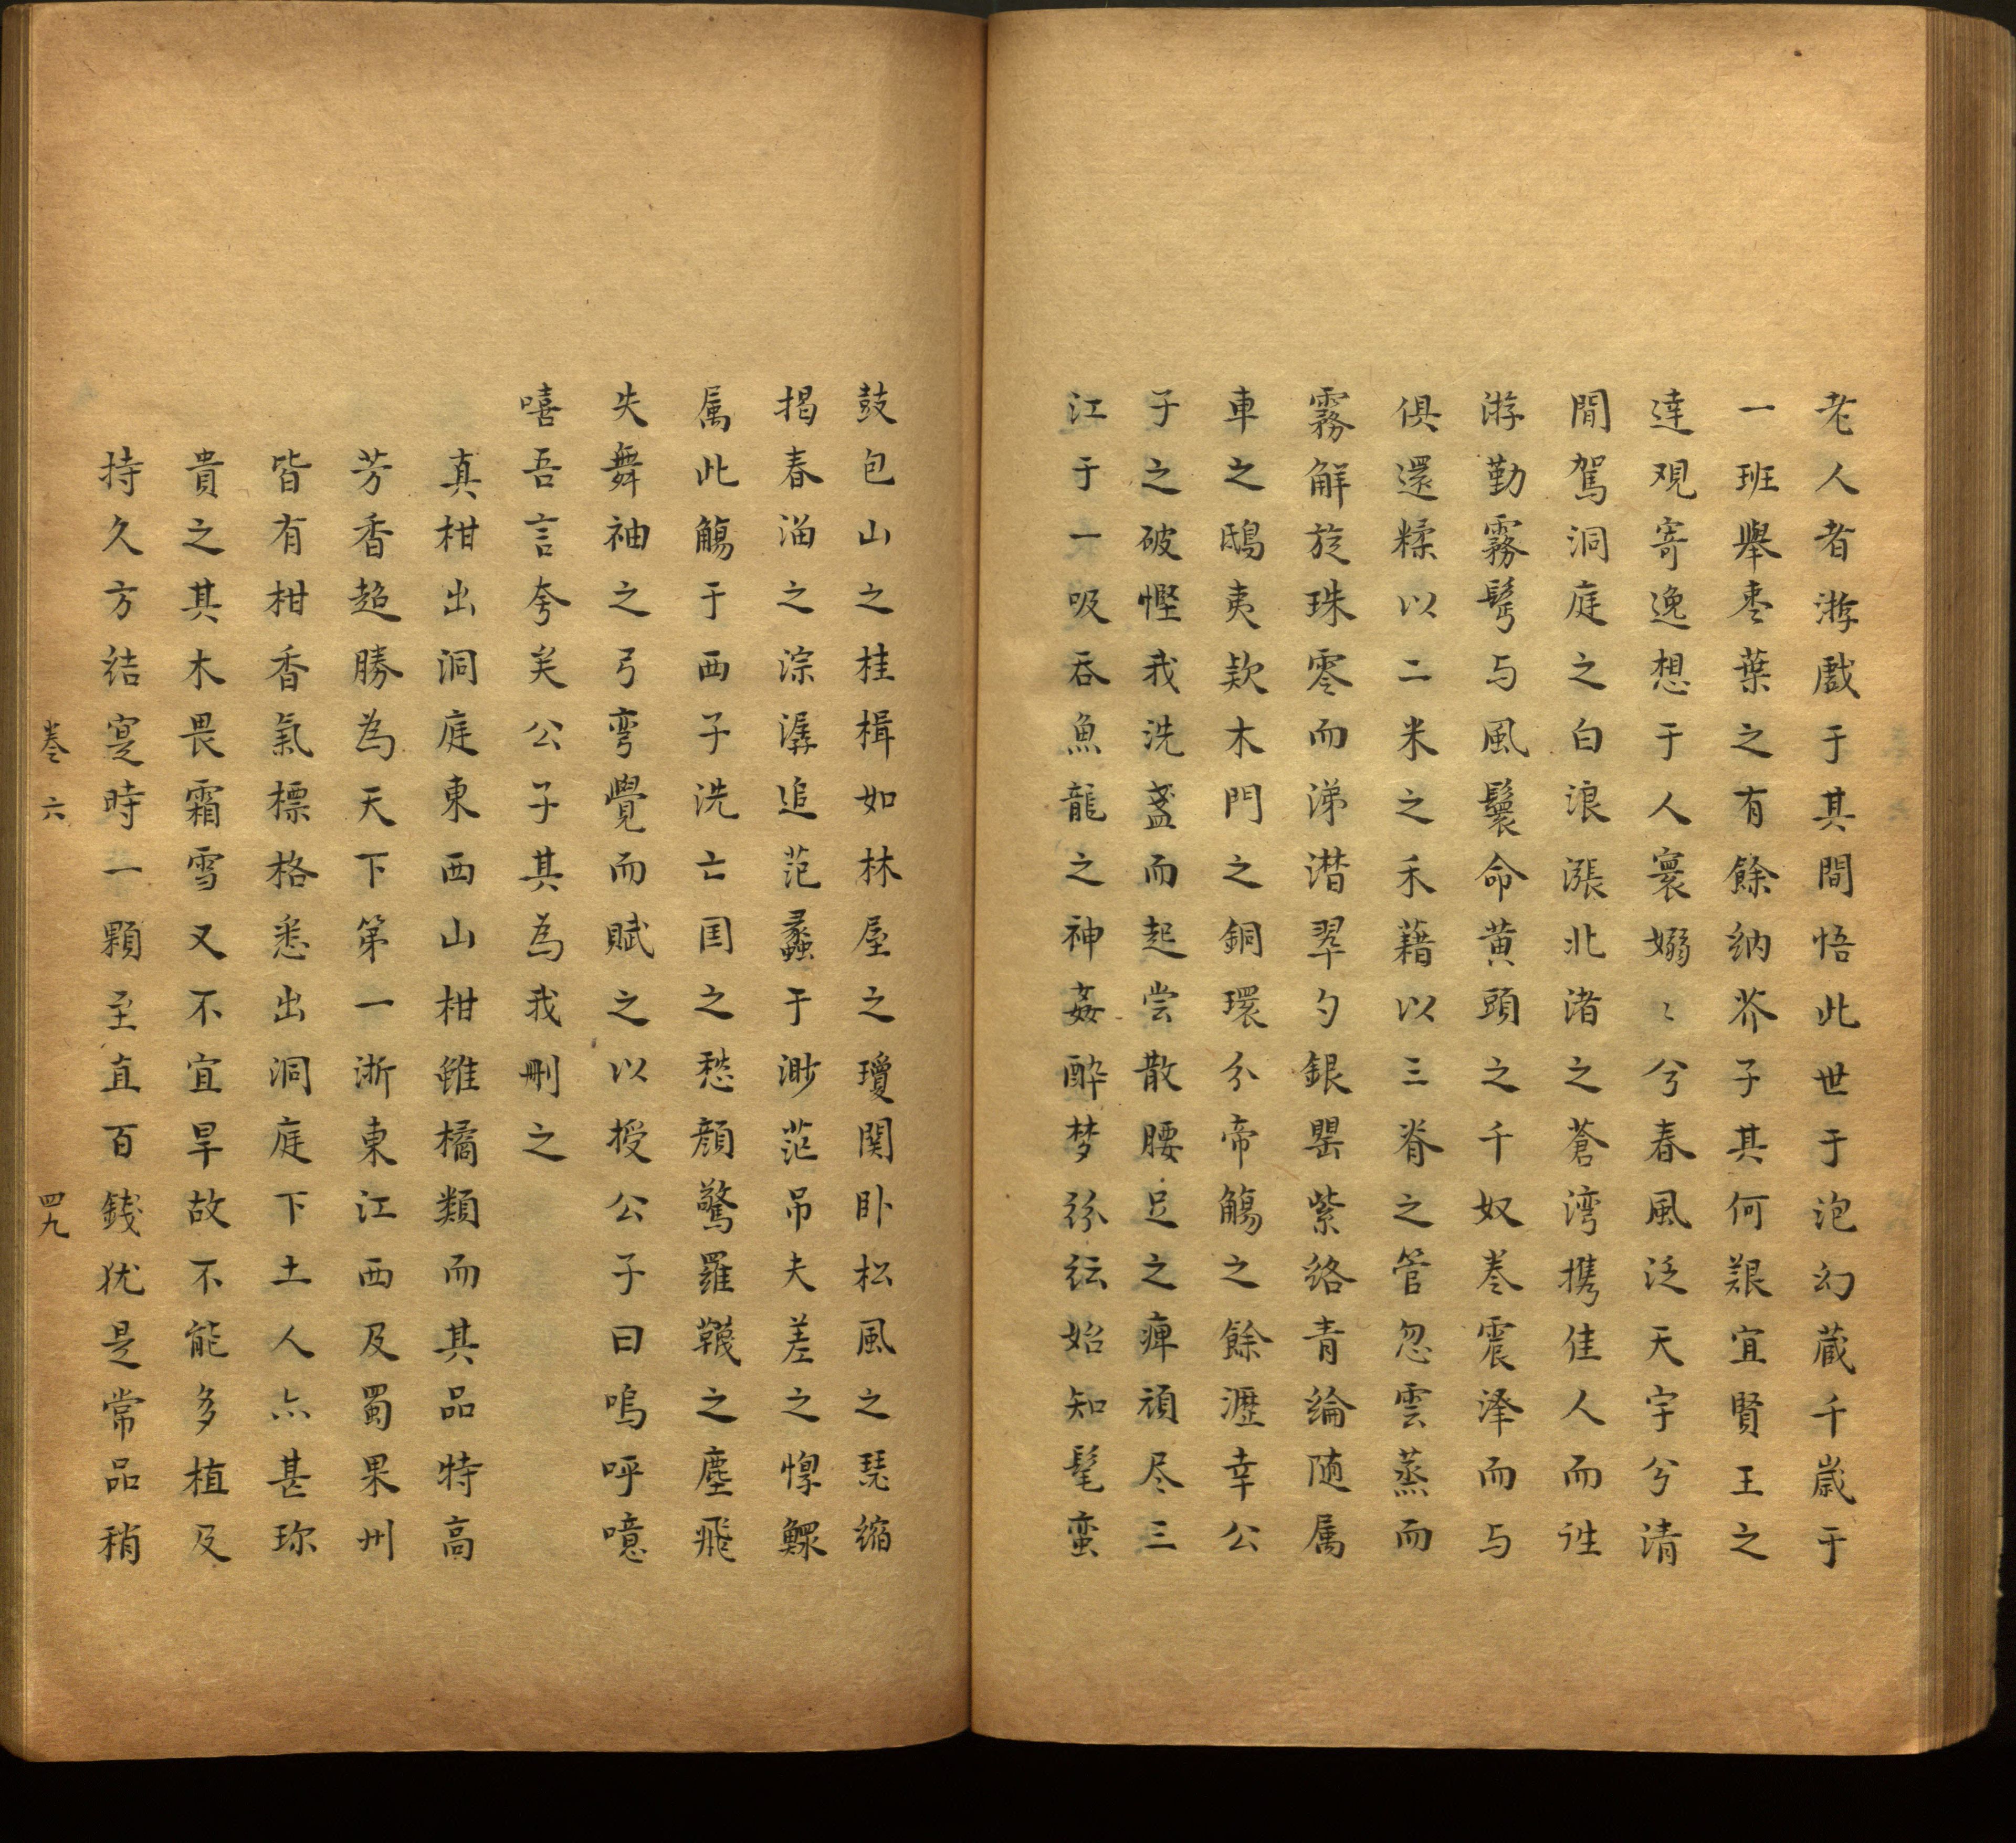 老人者游戲于其間悟此世于泡幻蔵千嵗于
一班舉枣葉之有餘納芥子其何艱宜賢王之
達观寄逸想于人寰嫋〻兮春風泛天宇兮清
閒駕洞庭之白浪漲北渚之蒼湾携佳人而徃
游勤霧鬂与風鬟命黄頭之千奴卷震泽而与
俱還糅以二米之禾藉以三脊之管忽雲蒸而
霧解旋珠零而涕潛翠勺銀罂紫络青綸随属
車之鴟夷款木門之銅環分帝觴之餘瀝幸公
子之破慳我洗盞而起尝散腰足之痺頑尽三
江于一吸吞魚龍之神姦醉梦紛纭始知髦蛮
鼓包山之桂楫如林屋之瓊関卧松風之瑟縮
揭春溜之淙潺追范蠡于渺茫吊夫差之惸鰥
属此觴于西子洗亡囯之愁顔驚羅韈之塵飛
失舞袖之弓弯覺而賦之以授公子曰嗚呼噫
嘻吾言夸矣公子其為我刪之
真柑出洞庭東西山柑雖橘類而其品特高
芳香超勝為天下第一浙東江西及蜀果州
皆有柑香氣標格悉出洞庭下土人亦甚珎
貴之其木畏霜雪又不宜旱故不能多植及
持久方结寔時一顆至直百錢犹是常品稍
卷六 四九